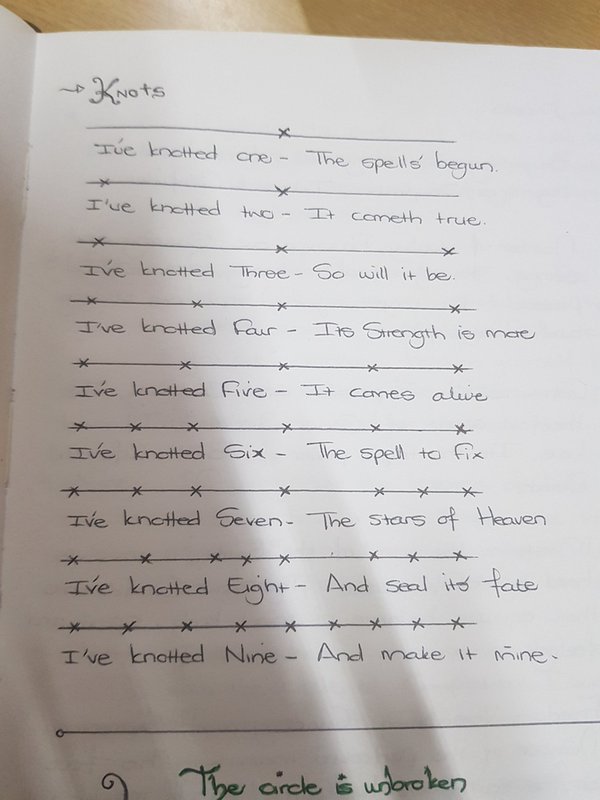 → Knots
I've knotted one - The spells' begun.
I've knotted two - It cometh true.
I've knotted Three - So will it be.
I've knotted Four - Its Strength is more
I've knotted Five - It comes alive
I've knotted Six - The spell to fix
I've knotted Seven - The stars of Heaven
I've knotted Eight - And seal its fate
I've knotted Nine - And make it mine.
The circle is unbroken